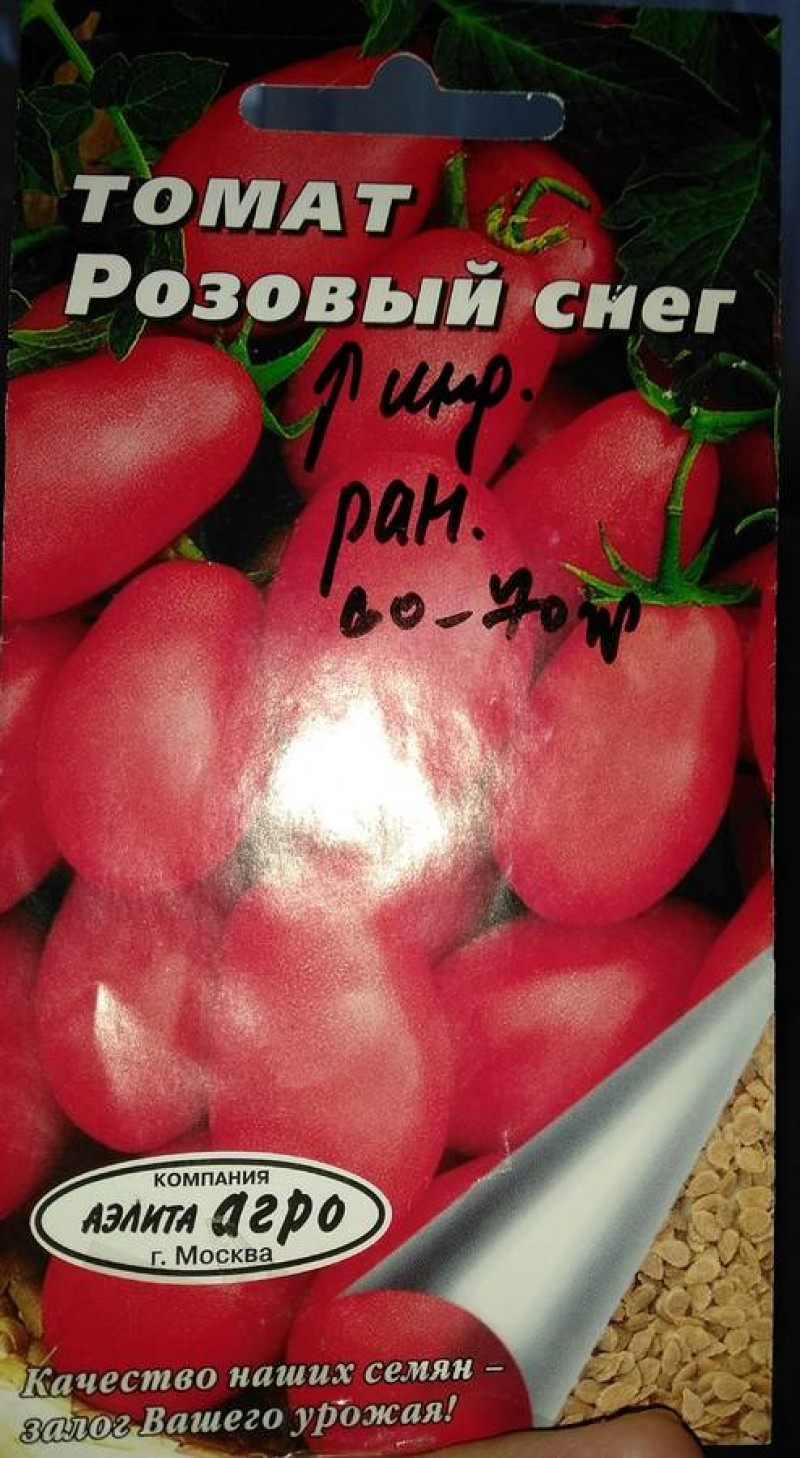 ТОМАТ
Розовый снег
инф.
ран.
60-70гр
КОМПАНИЯ
АЭЛИТА агро
г. Москва
Качество наших семян –
залог Вашего урожая!